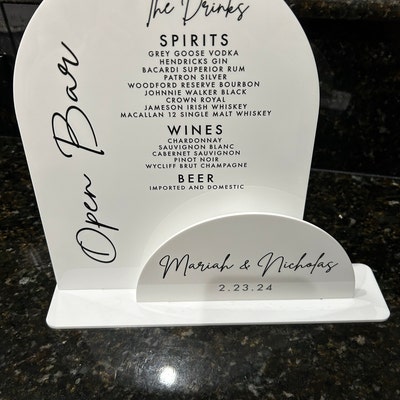 The Drinks
Open Bar
SPIRITS
GREY GOOSE VODKA
HENDRICKS GIN
BACARDI SUPERIOR RUM
PATRON SILVER
WOODFORD RESERVE BOURBON
JOHNNIE WALKER BLACK
CROWN ROYAL
JAMESON IRISH WHISKEY
MACALLAN 12 SINGLE MALT WHISKEY
WINES
CHARDONNAY
SAUVIGNON BLANC
CABERNET SAUVIGNON
PINOT NOIR
WYCLIFF BRUT CHAMPAGNE
BEER
IMPORTED AND DOMESTIC
Mariah & Nicholas
2.23.24